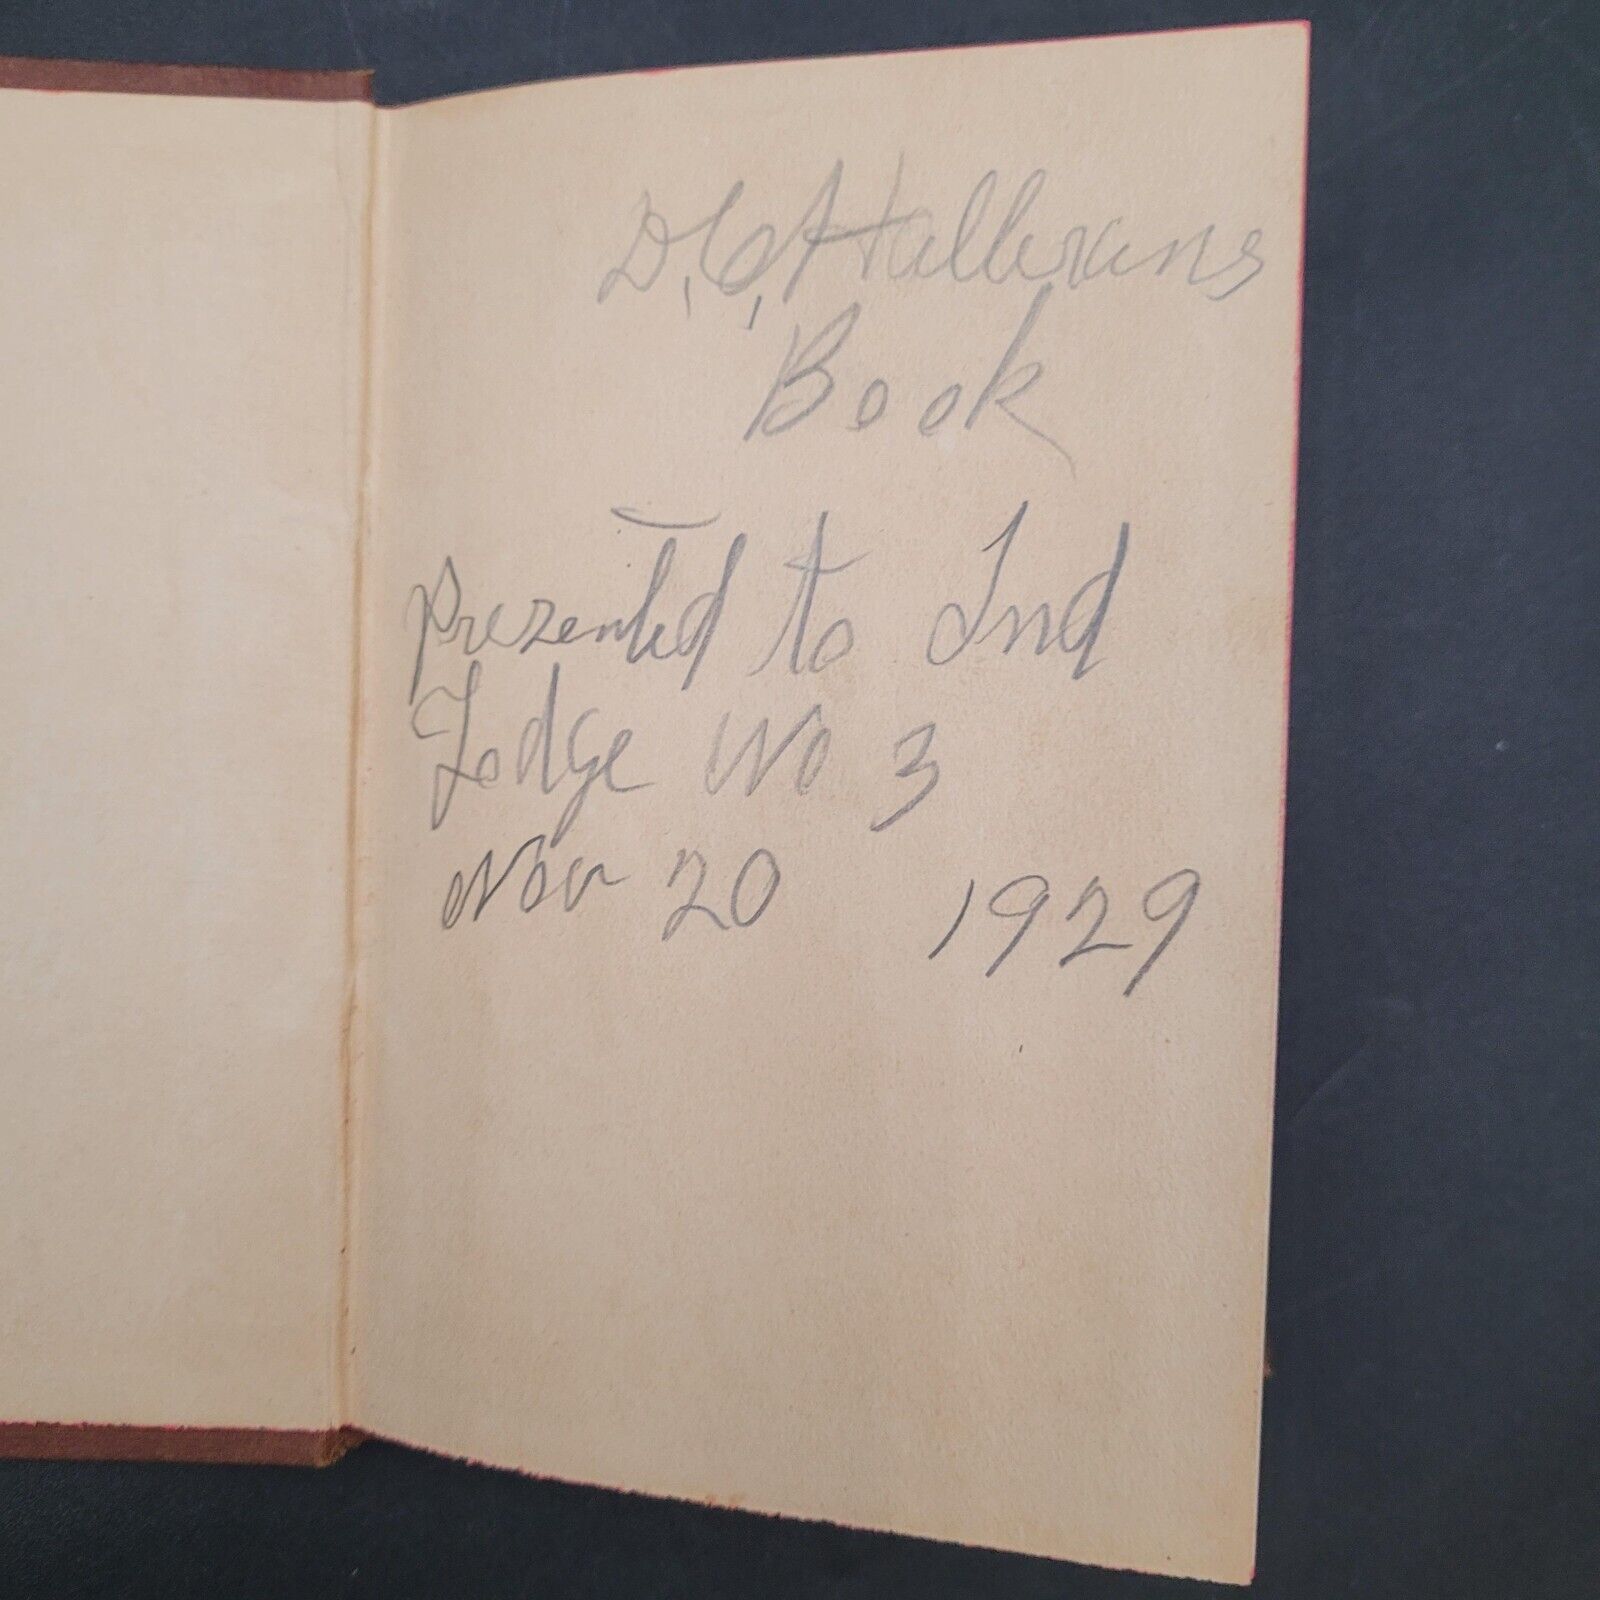 D, C, Hallerans
Book
Prezented to Ind
Lodge No 3
Nov 20 1929